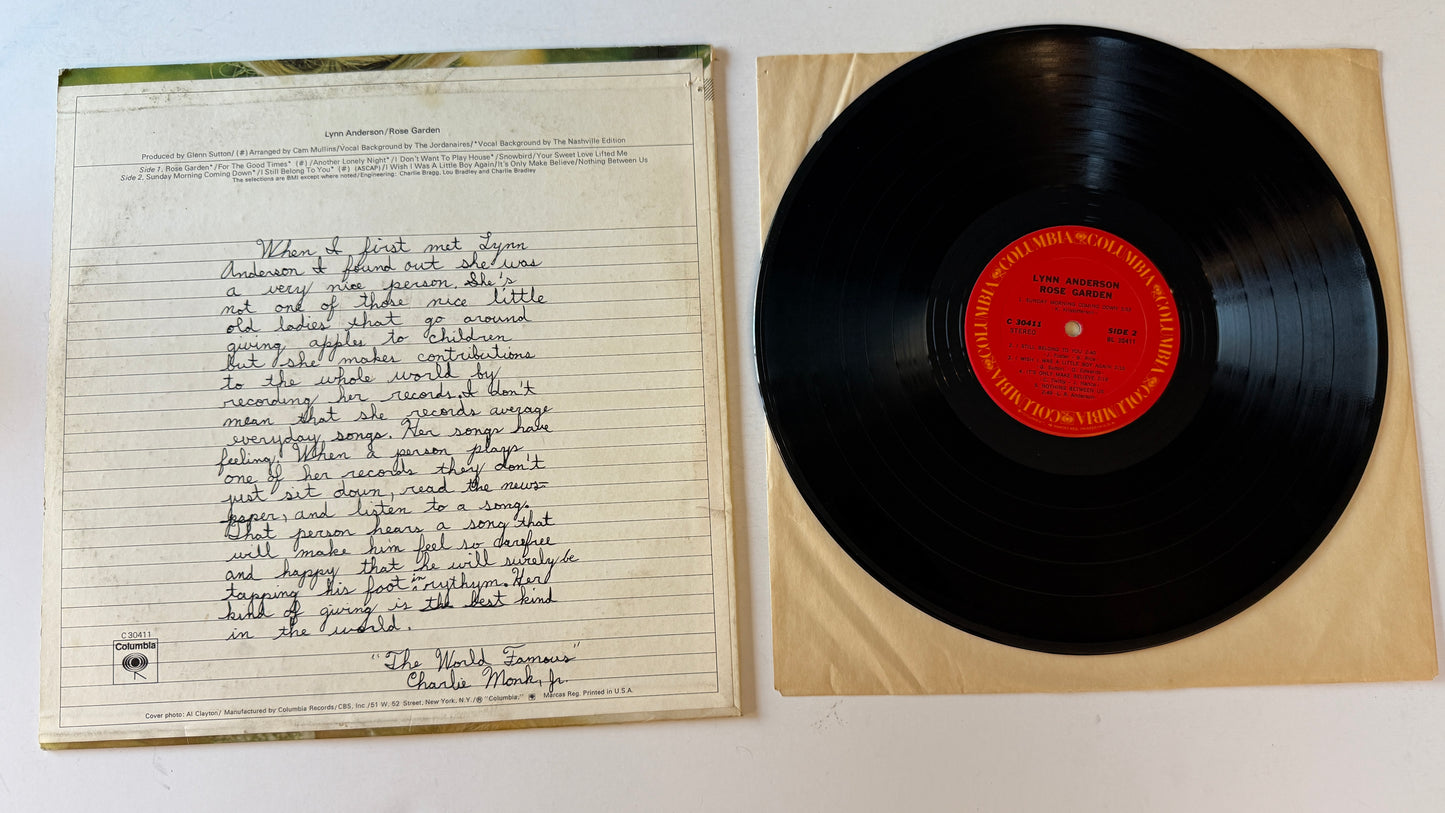 Lynn Anderson/Rose Garden
Produced by Glenn Sutton/(#) Arranged by Cam Mullins/Vocal Background by The Jordanaires/*Vocal Background by The Nashville Edition
Side 1. Rose Garden*/For The Good Times* (#)/Another Lonely Night*/I Don't Want To Play House*/Snowbird/Your Sweet Love Lifted Me
Side 2. Sunday Morning Coming Down*/I Still Belong To You* (#) (ASCAP)/I Wish I Was A Little Boy Again/It's Only Make Believe/Nothing Between Us
The selections are BMI except where noted/Engineering: Charlie Bragg, Lou Bradley and Charlie Bradley
When I first met Lynn
Anderson I found out she was
a very nice person. She's
not one of those nice little
old ladies that go around
giving apples to children
but she makes contributions
to the whole world by
recording her records. I don't
mean that she records average
everyday songs. Her songs have
feeling. When a person plays
one of her records they don't
just sit down, read the news-
paper, and listen to a song.
That person hears a song that
will make him feel so carefree
and happy that he will surely be
tapping his foot in rythym. Her
kind of giving is the best kind
in the world.
"The World Famous"
Charlie Monk, Jr.
C 30411
Columbia
Cover photo: Al Clayton/Manufactured by Columbia Records/CBS, Inc./51 W. 52 Street, New York, N.Y./® "Columbia," Marcas Reg. Printed in U.S.A.
COLUMBIA COLUMBIA COLUMBIA COLUMBIA COLUMBIA COLUMBIA
LYNN ANDERSON
ROSE GARDEN
1. SUNDAY MORNING COMING DOWN
C 30411
STEREO
SIDE 2
BL 30411
2. I STILL BELONG TO YOU
3. I WISH I WAS A LITTLE BOY AGAIN
4. IT'S ONLY MAKE BELIEVE
5. NOTHING BETWEEN US